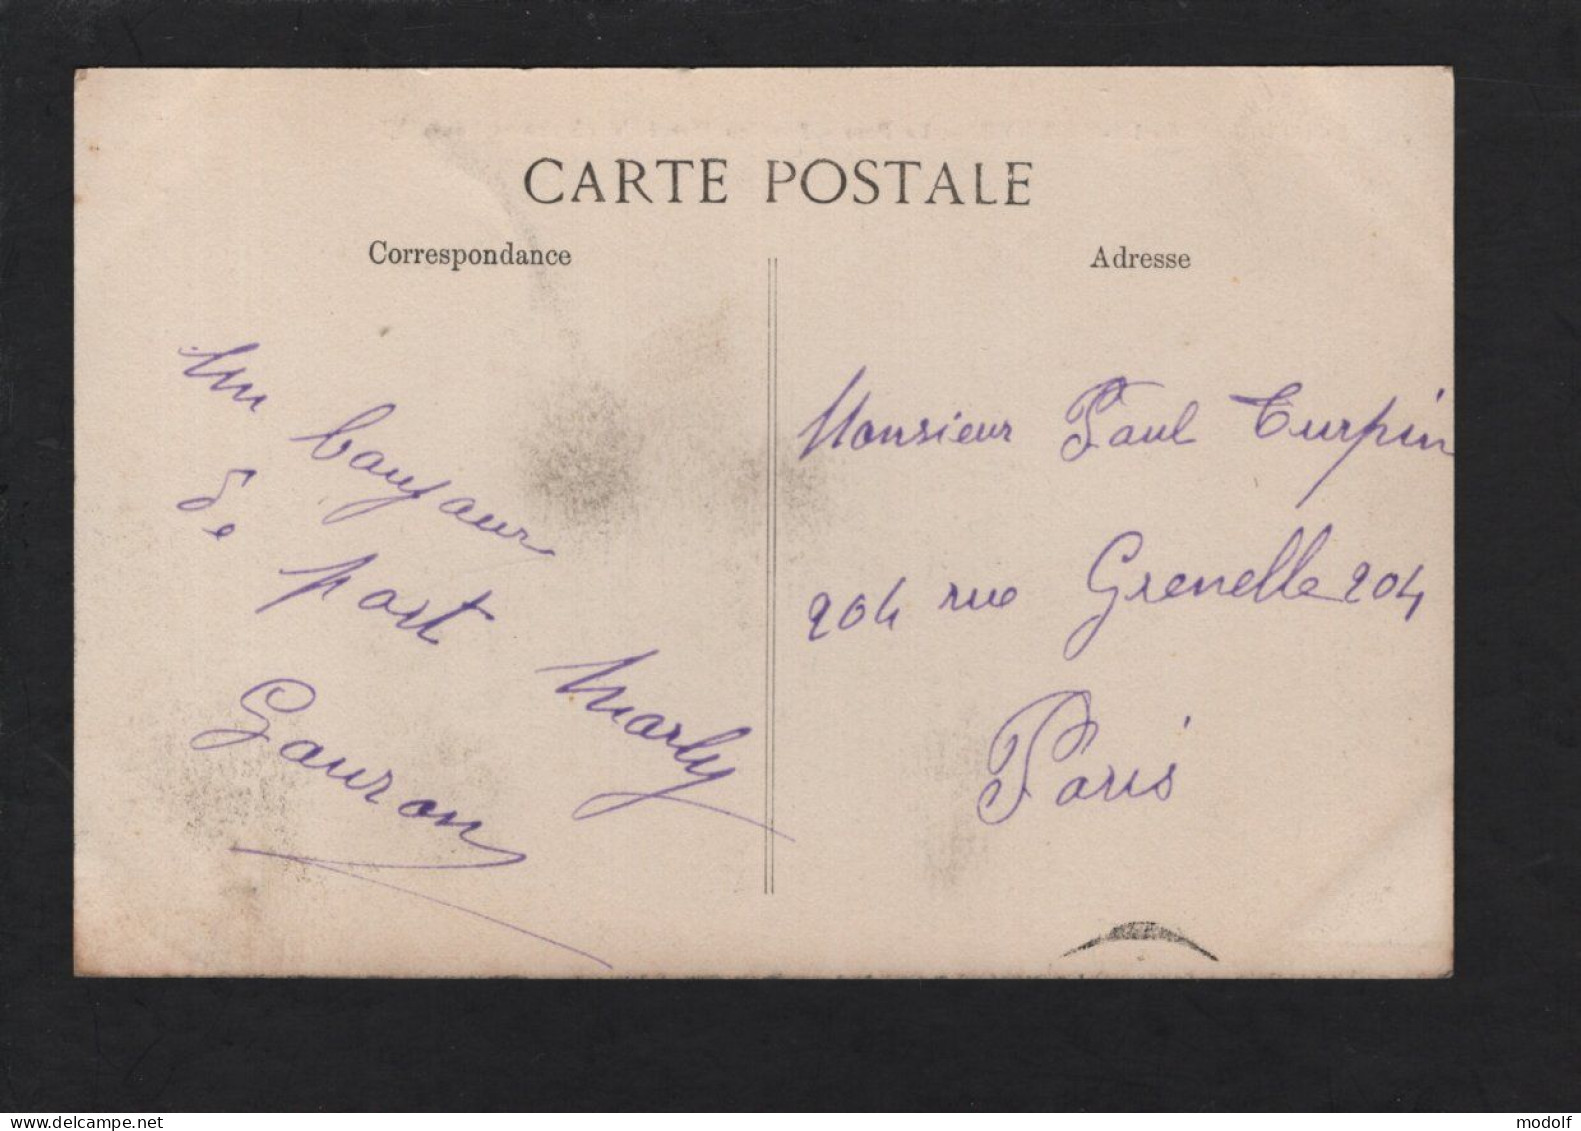 CARTE POSTALE
Correspondance
Un bonjour
de port Marly
Gauron
Adresse
Monsieur Paul Turpin
204 rue Grenelle 204
Paris
www.delcampe.net
modolf